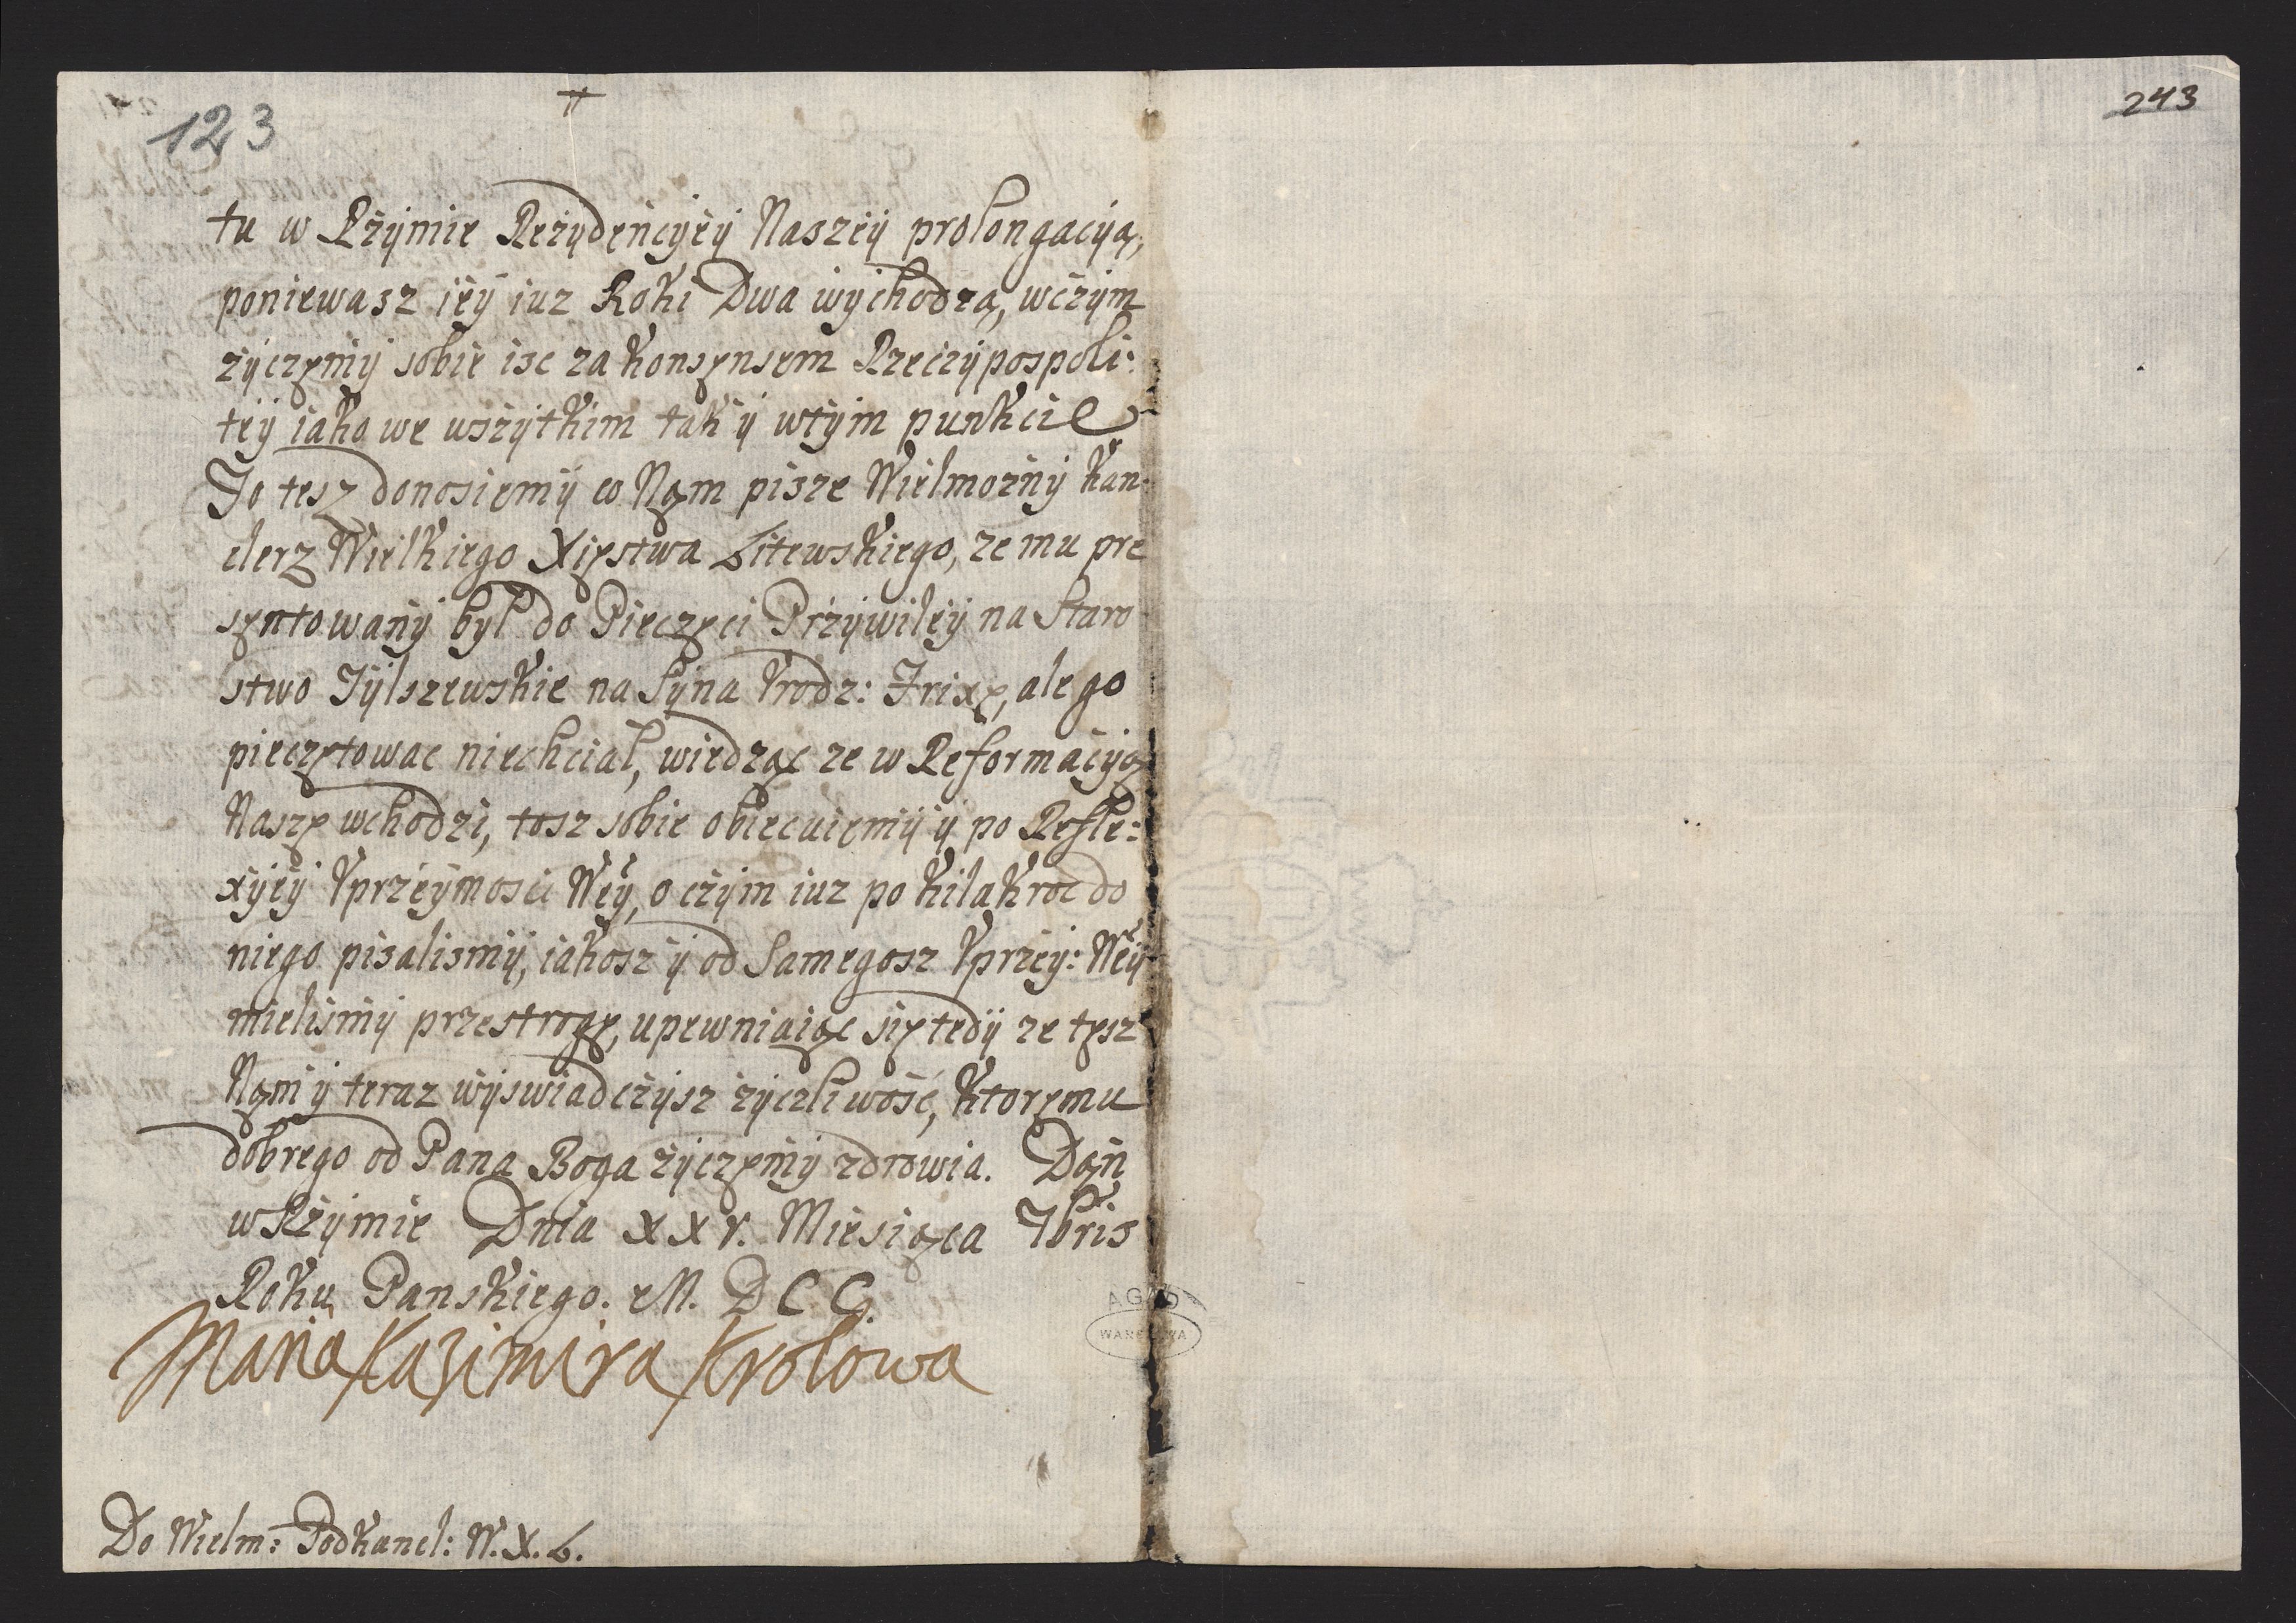 123
243
tu w Rzÿmie Rezÿdencÿeÿ Naszeÿ prolongacÿą,
poniewasz ieÿ iuz Roki Dwa wÿchodzą, wczÿm
zÿczęmÿ sobie isc za konsęnsem Rzeczÿpospoli:
teÿ iako we wszÿtkim tak ÿ wtÿm punkcie
To tesz donosiemÿ co Nąm pisze Wielmoznÿ Kan-
clerz Wielkiego Xięstwa Litewskiego, ze mu pre
sęntowanÿ był do Pieczęci Przÿwileÿ na Staro
stwo Tÿlszewskie na Sÿna Vrodz: Frixę, ale go
pieczętowac niechciał, wiedząc ze w Reformacÿą
Naszę wchodzi, tosz sobie obiecuiemÿ ÿ po Refle:
xÿeÿ Vprzeÿmosci Weÿ, o czÿm iuz po kilakroc do
niego pisalismÿ, iakosz ÿ od Samegosz Vprzeÿ: Weÿ
mielismÿ przestrogę, upewniaiąc się tedÿ ze tęsz
Nąm ÿ teraz wÿswiadczÿsz zÿczliwość, ktoręmu
dobrego od Pana Boga zÿczęmÿ zdrowia. Dąn
w Rzÿmie Dnia XXV. Miesiąca 7bris
Roku Panskiego. M. D C C.
Maria Kazimira Krolowa
AGAD
WARSZAWA
Do Wielm: Podkancl: W. X. L.